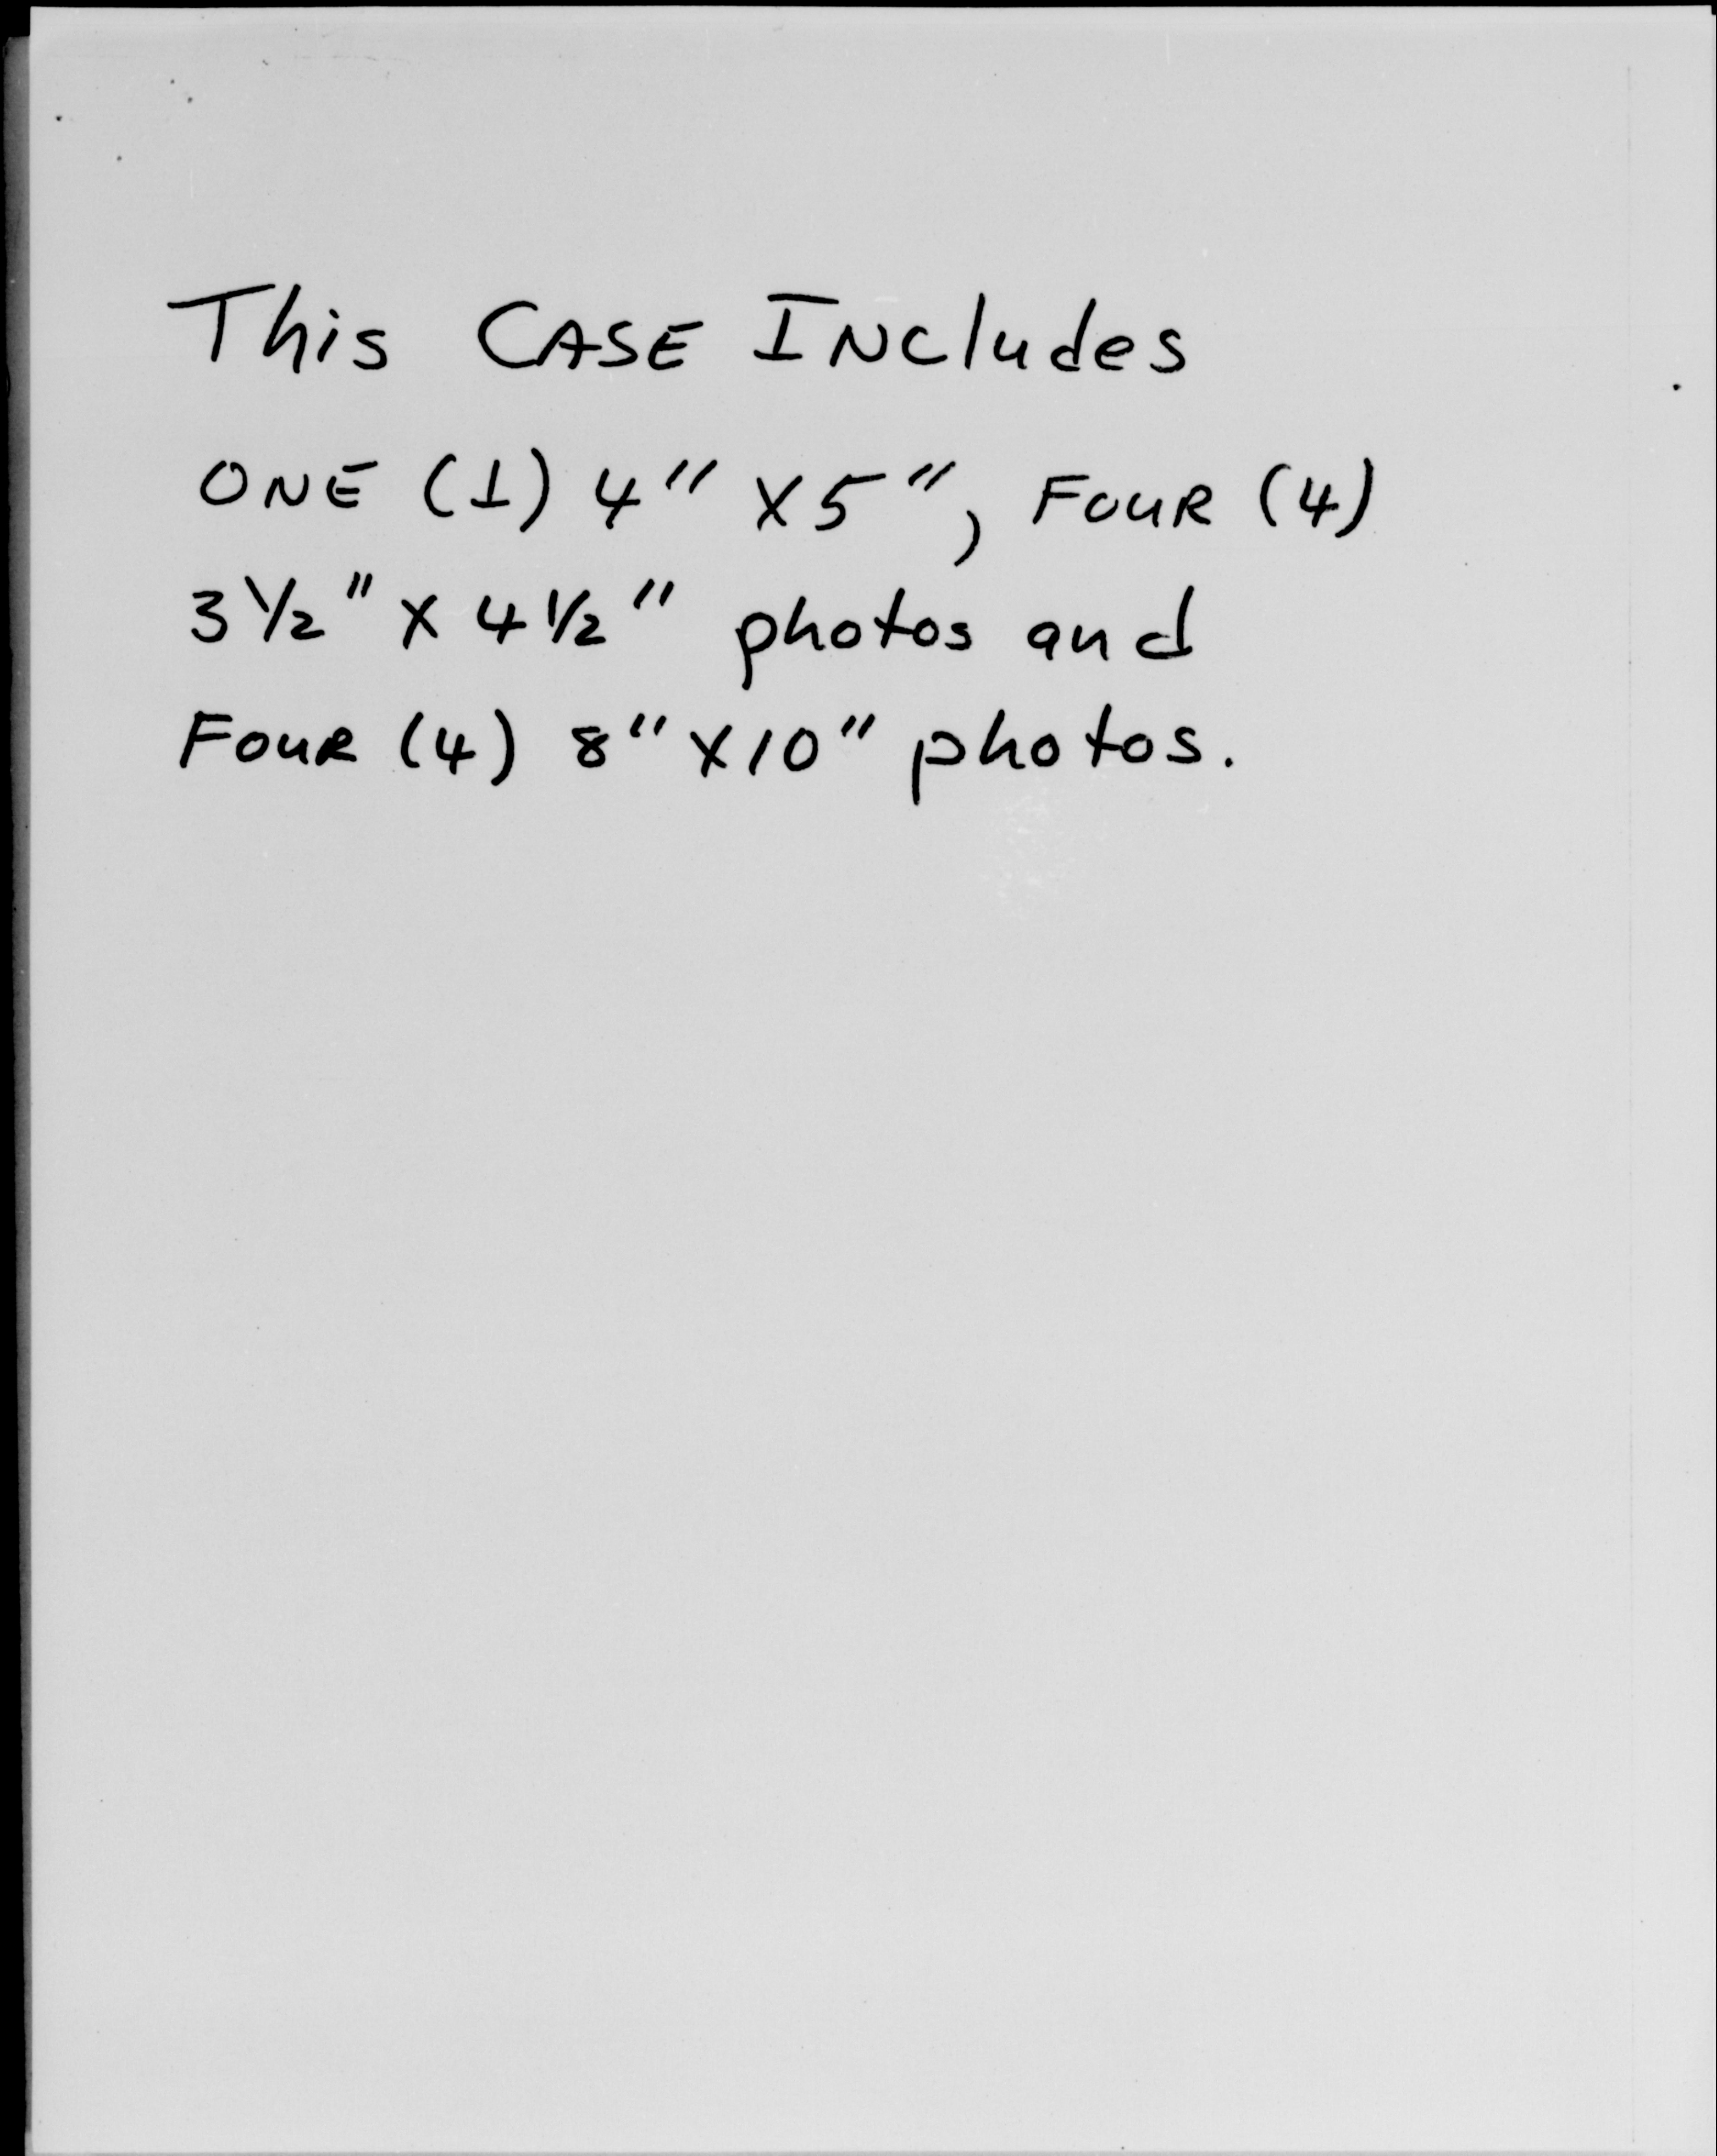 This CASE INCludes
ONE (1) 4" X5", FOUR (4)
3 1/2" X 4 1/2" photos and
FOUR (4) 8" X10" photos.